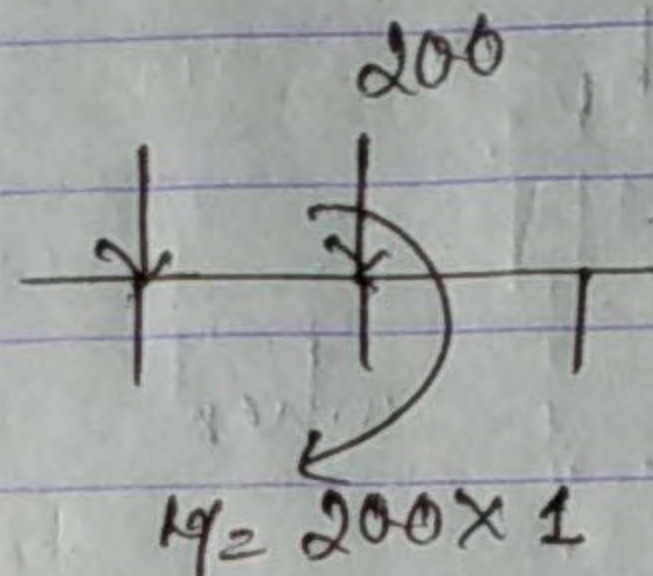 200
M = 200 × 1